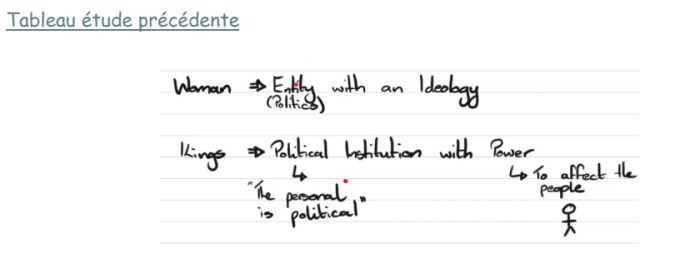 Tableau étude précédente
Woman ⇒ Entity with an Ideology
(Politics)
Kings ⇒ Political Institution with Power
↳ ↳ To affect the
"The personal people
is political"